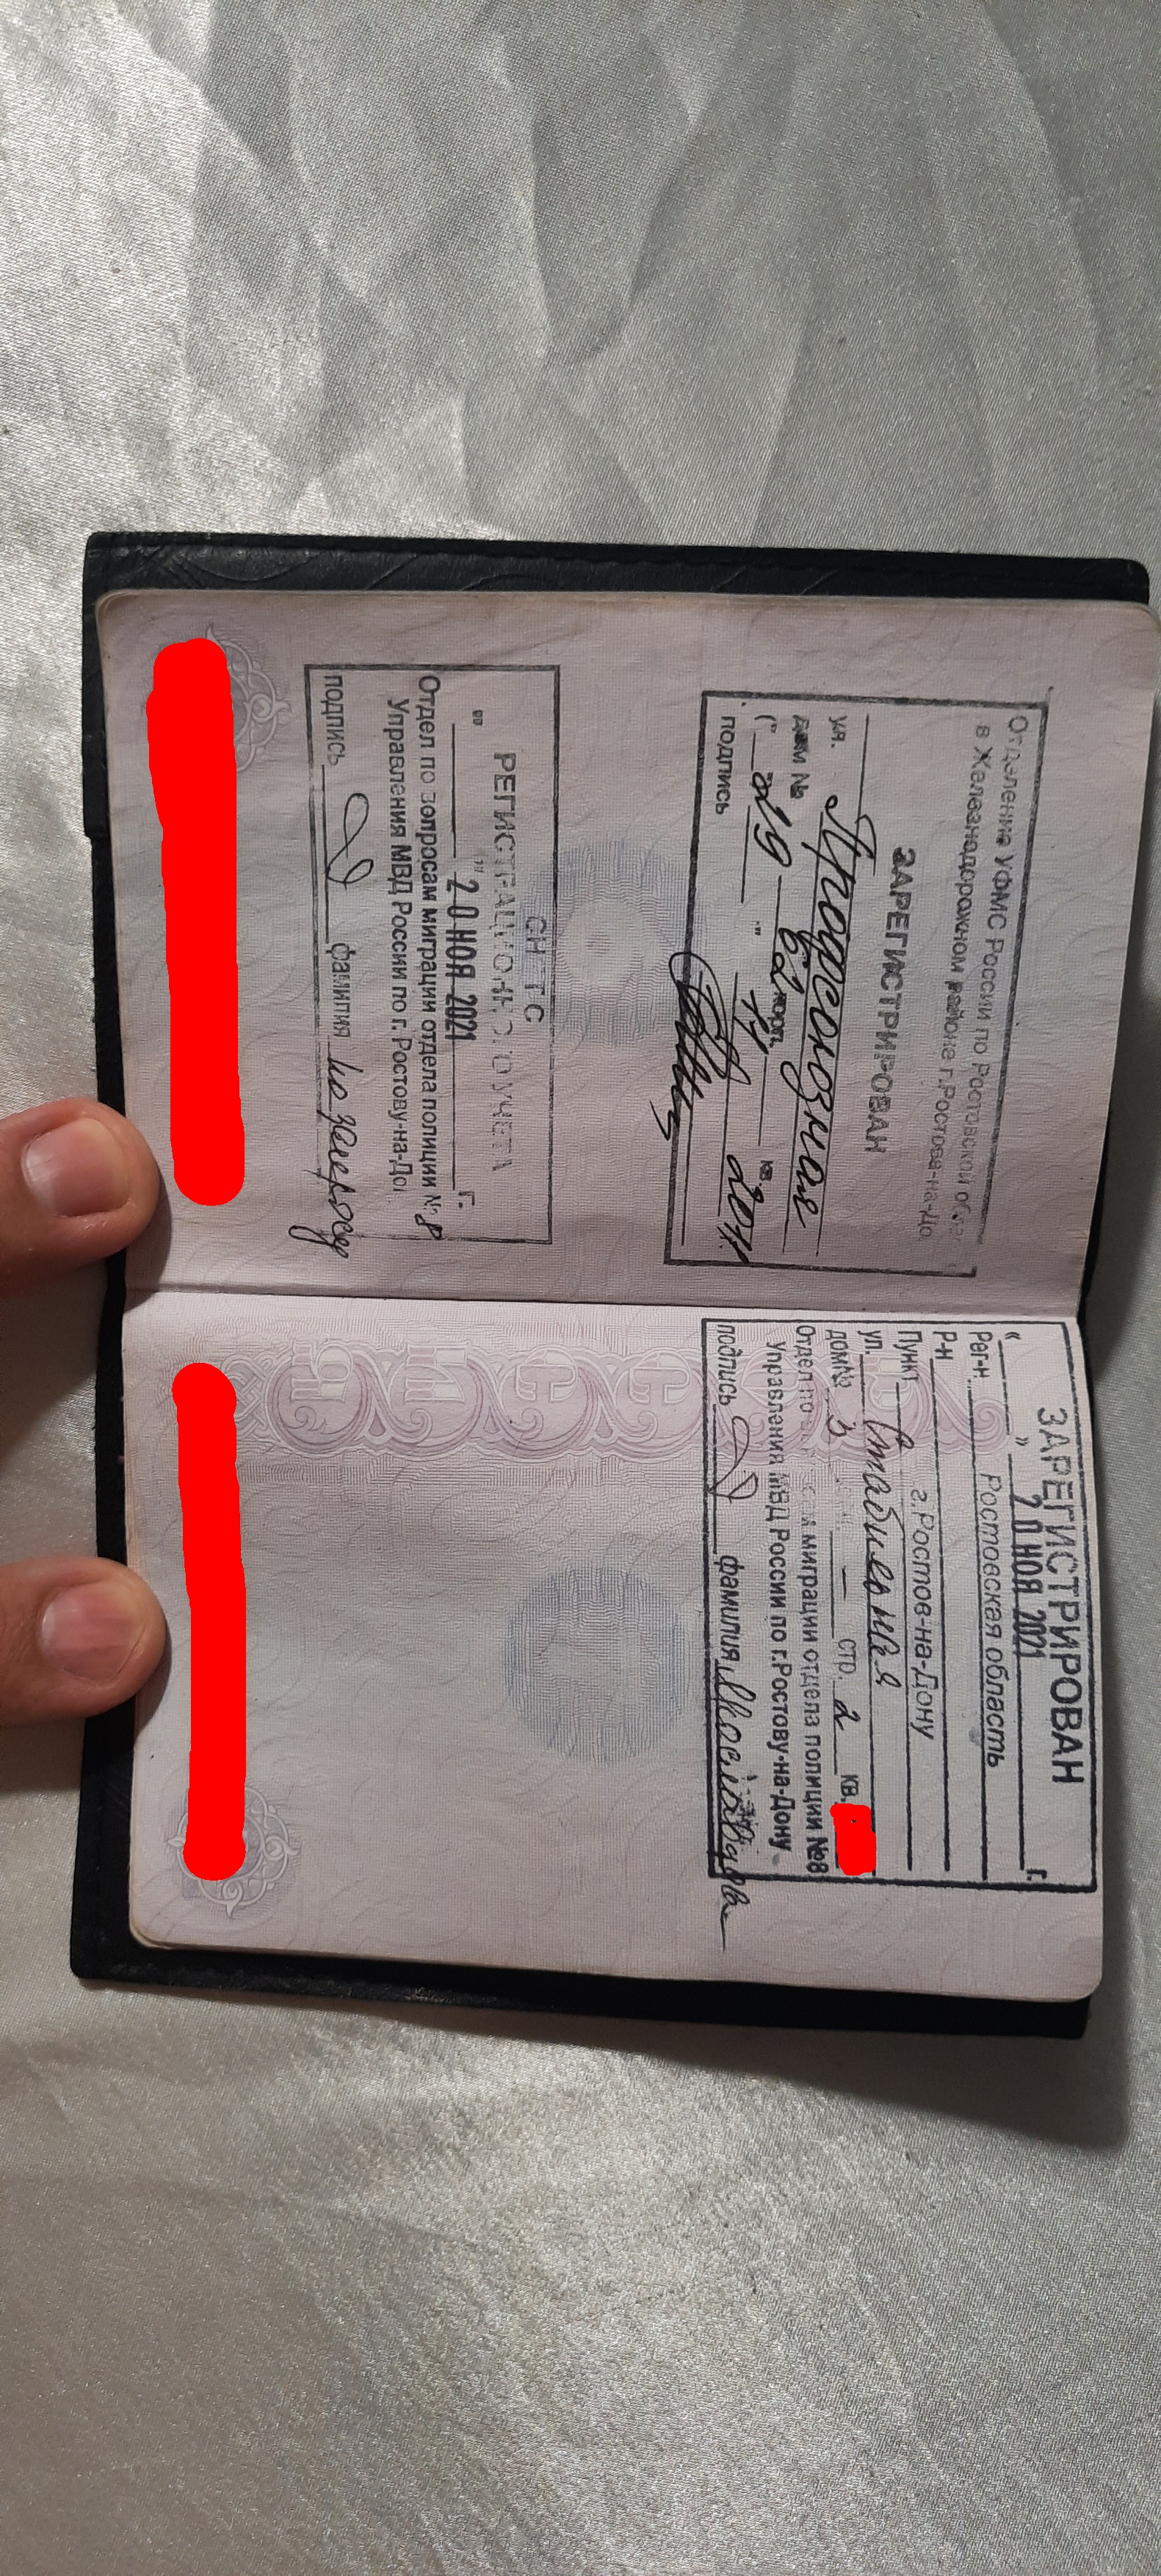 Отделение УФМС России по Ростовской обла
в Железнодорожном районе г.Ростова-на-До
ЗАРЕГИСТРИРОВАН
ул. Профсоюзная
дом № корп. кв.
29 11 2011
подпись
СНЯТ С
РЕГИСТРАЦИОННОГО УЧЕТА
" " 20 НОЯ 2021 г.
Отдел по вопросам миграции отдела полиции № 8
Управления МВД России по г. Ростову-на-До
подпись фамилия
ЗАРЕГИСТРИРОВАН
« » 20 НОЯ 2021 г.
Рег-н Ростовская область
Р-н
Пункт г.Ростов-на-Дону
ул. Стабильная
дом№ 3 – стр. 2 кв.
Отдел по миграции отдела полиции №8
Управления МВД России по г.Ростову-на-Дону
подпись фамилия